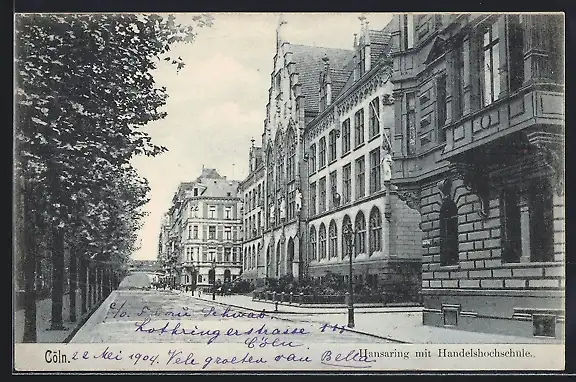 c/o Frau Schwab
Lothringerstrasse 111
Cöln
Cöln. 22 Mei 1904. Vele groeten van Bella
Hansaring mit Handelshochschule.